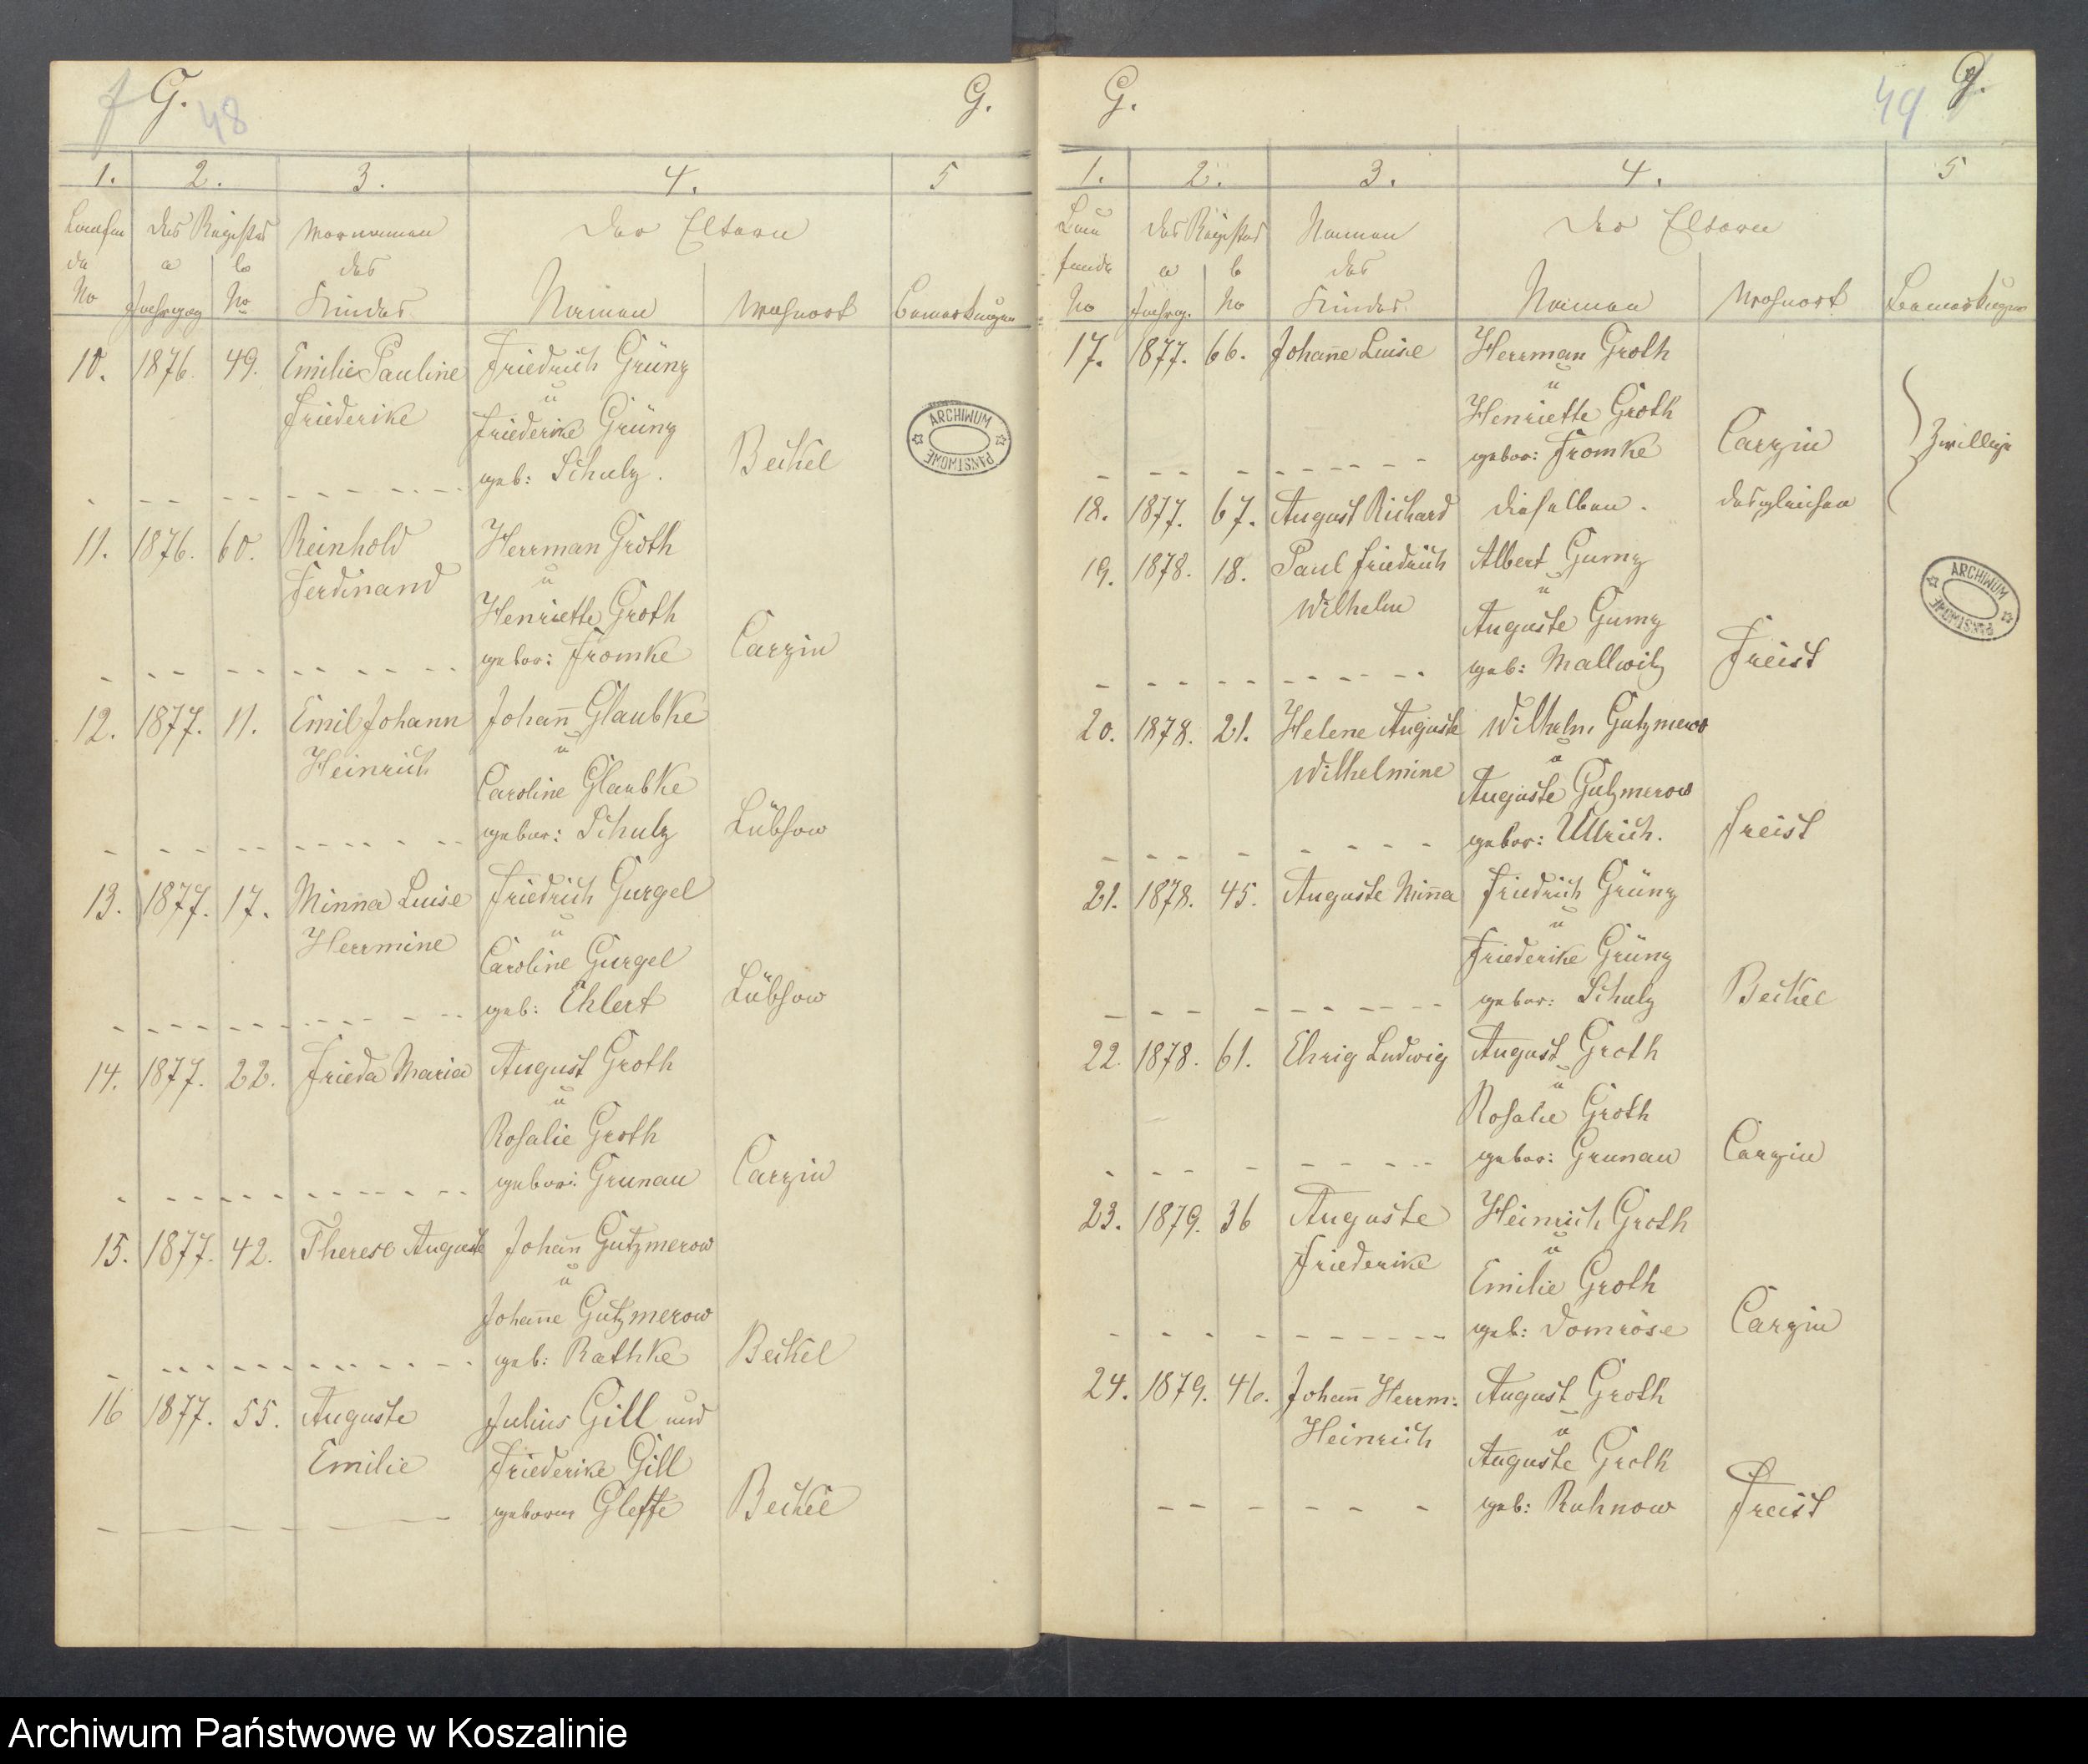 G. 48 G.
1. 2. 3. 4. 5
Laufen des Registers Vornamen Der Eltern
de a b des
No Jahrgang No Kindes Namen Wohnort Bemerkungen
10. 1876. 49. Emilie Pauline Friedrich Grünz
u
Friederike Friederike Grünz
geb: Schulz. Beckel
11. 1876. 60. Reinhold Herrman Groth
u
Ferdinand Henriette Groth
gebor: Fromke Carzin
12. 1877. 11. Emil Johann Johan̄ Glaubke
u
Heinrich Caroline Glaubke
gebor: Schulz Lübsow
13. 1877. 17. Minna Luise Friedrich Gurgel
u
Herrmine Caroline Gurgel
geb: Ehlert Lübsow
14. 1877. 22. Frieda Maria August Groth
u
Rosalie Groth
gebor: Grunau Carzin
15. 1877. 42. Therese Auguste Johan̄ Gutzmerow
u
Johan̄e Gutzmerow
geb: Rathke Beckel
16 1877. 55. Auguste Julius Gill und
Emilie Friederike Gill
geborne Gleffe Beckel
G. 49 G.
1. 2. 3. 4. 5
Lau des Registers Namen Der Eltern
fende a b des
No Jahrg. No Kindes Namen Wohnort Bemerkungen
17. 1877. 66. Johan̄e Luise Herrman Groth
u
Henriette Groth
gebor: Fromke Carzin Zwillinge
18. 1877. 67. August Richard dieselben. desgleichen
19. 1878. 18. Paul Friedrich Albert Gumz
u
Wilhelm Auguste Gumz
geb: Mallwitz Freist
20. 1878. 21. Helene Auguste Wilhelm Gutzmerow
u
Wilhelmine Auguste Gutzmerow
gebor: Ullrich. Freist
21. 1878. 45. Auguste Min̄a Friedrich Grünz
u
Friederike Grünz
gebor: Schulz Beckel
22. 1878. 61. Ehrig Ludwig August Groth
u
Rosalie Groth
gebor: Grunau Carzin
23. 1879. 36 Auguste Heinrich Groth
u
Friederike Emilie Groth
geb: Domröse Carzin
24. 1879. 46. Johan̄ Herrm: August Groth
u
Heinrich Auguste Groth
geb: Ruhnow Freist
ARCHIWUM PAŃSTWOWE
ARCHIWUM PAŃSTWOWE
Archiwum Państwowe w Koszalinie